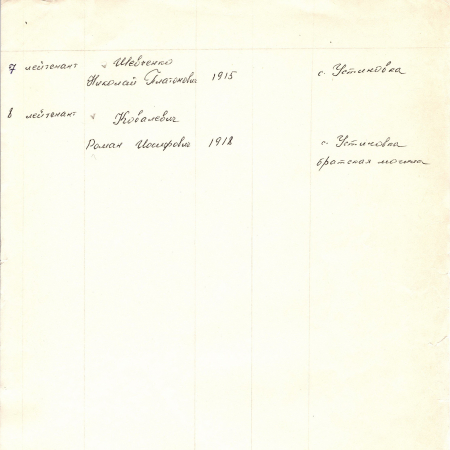 7 лейтенант Шевченко
Николай Платонович 1915 с. Устиновка
8 лейтенант Ковалевич
Роман Иосифович 1918 с. Устиновка
братская могила